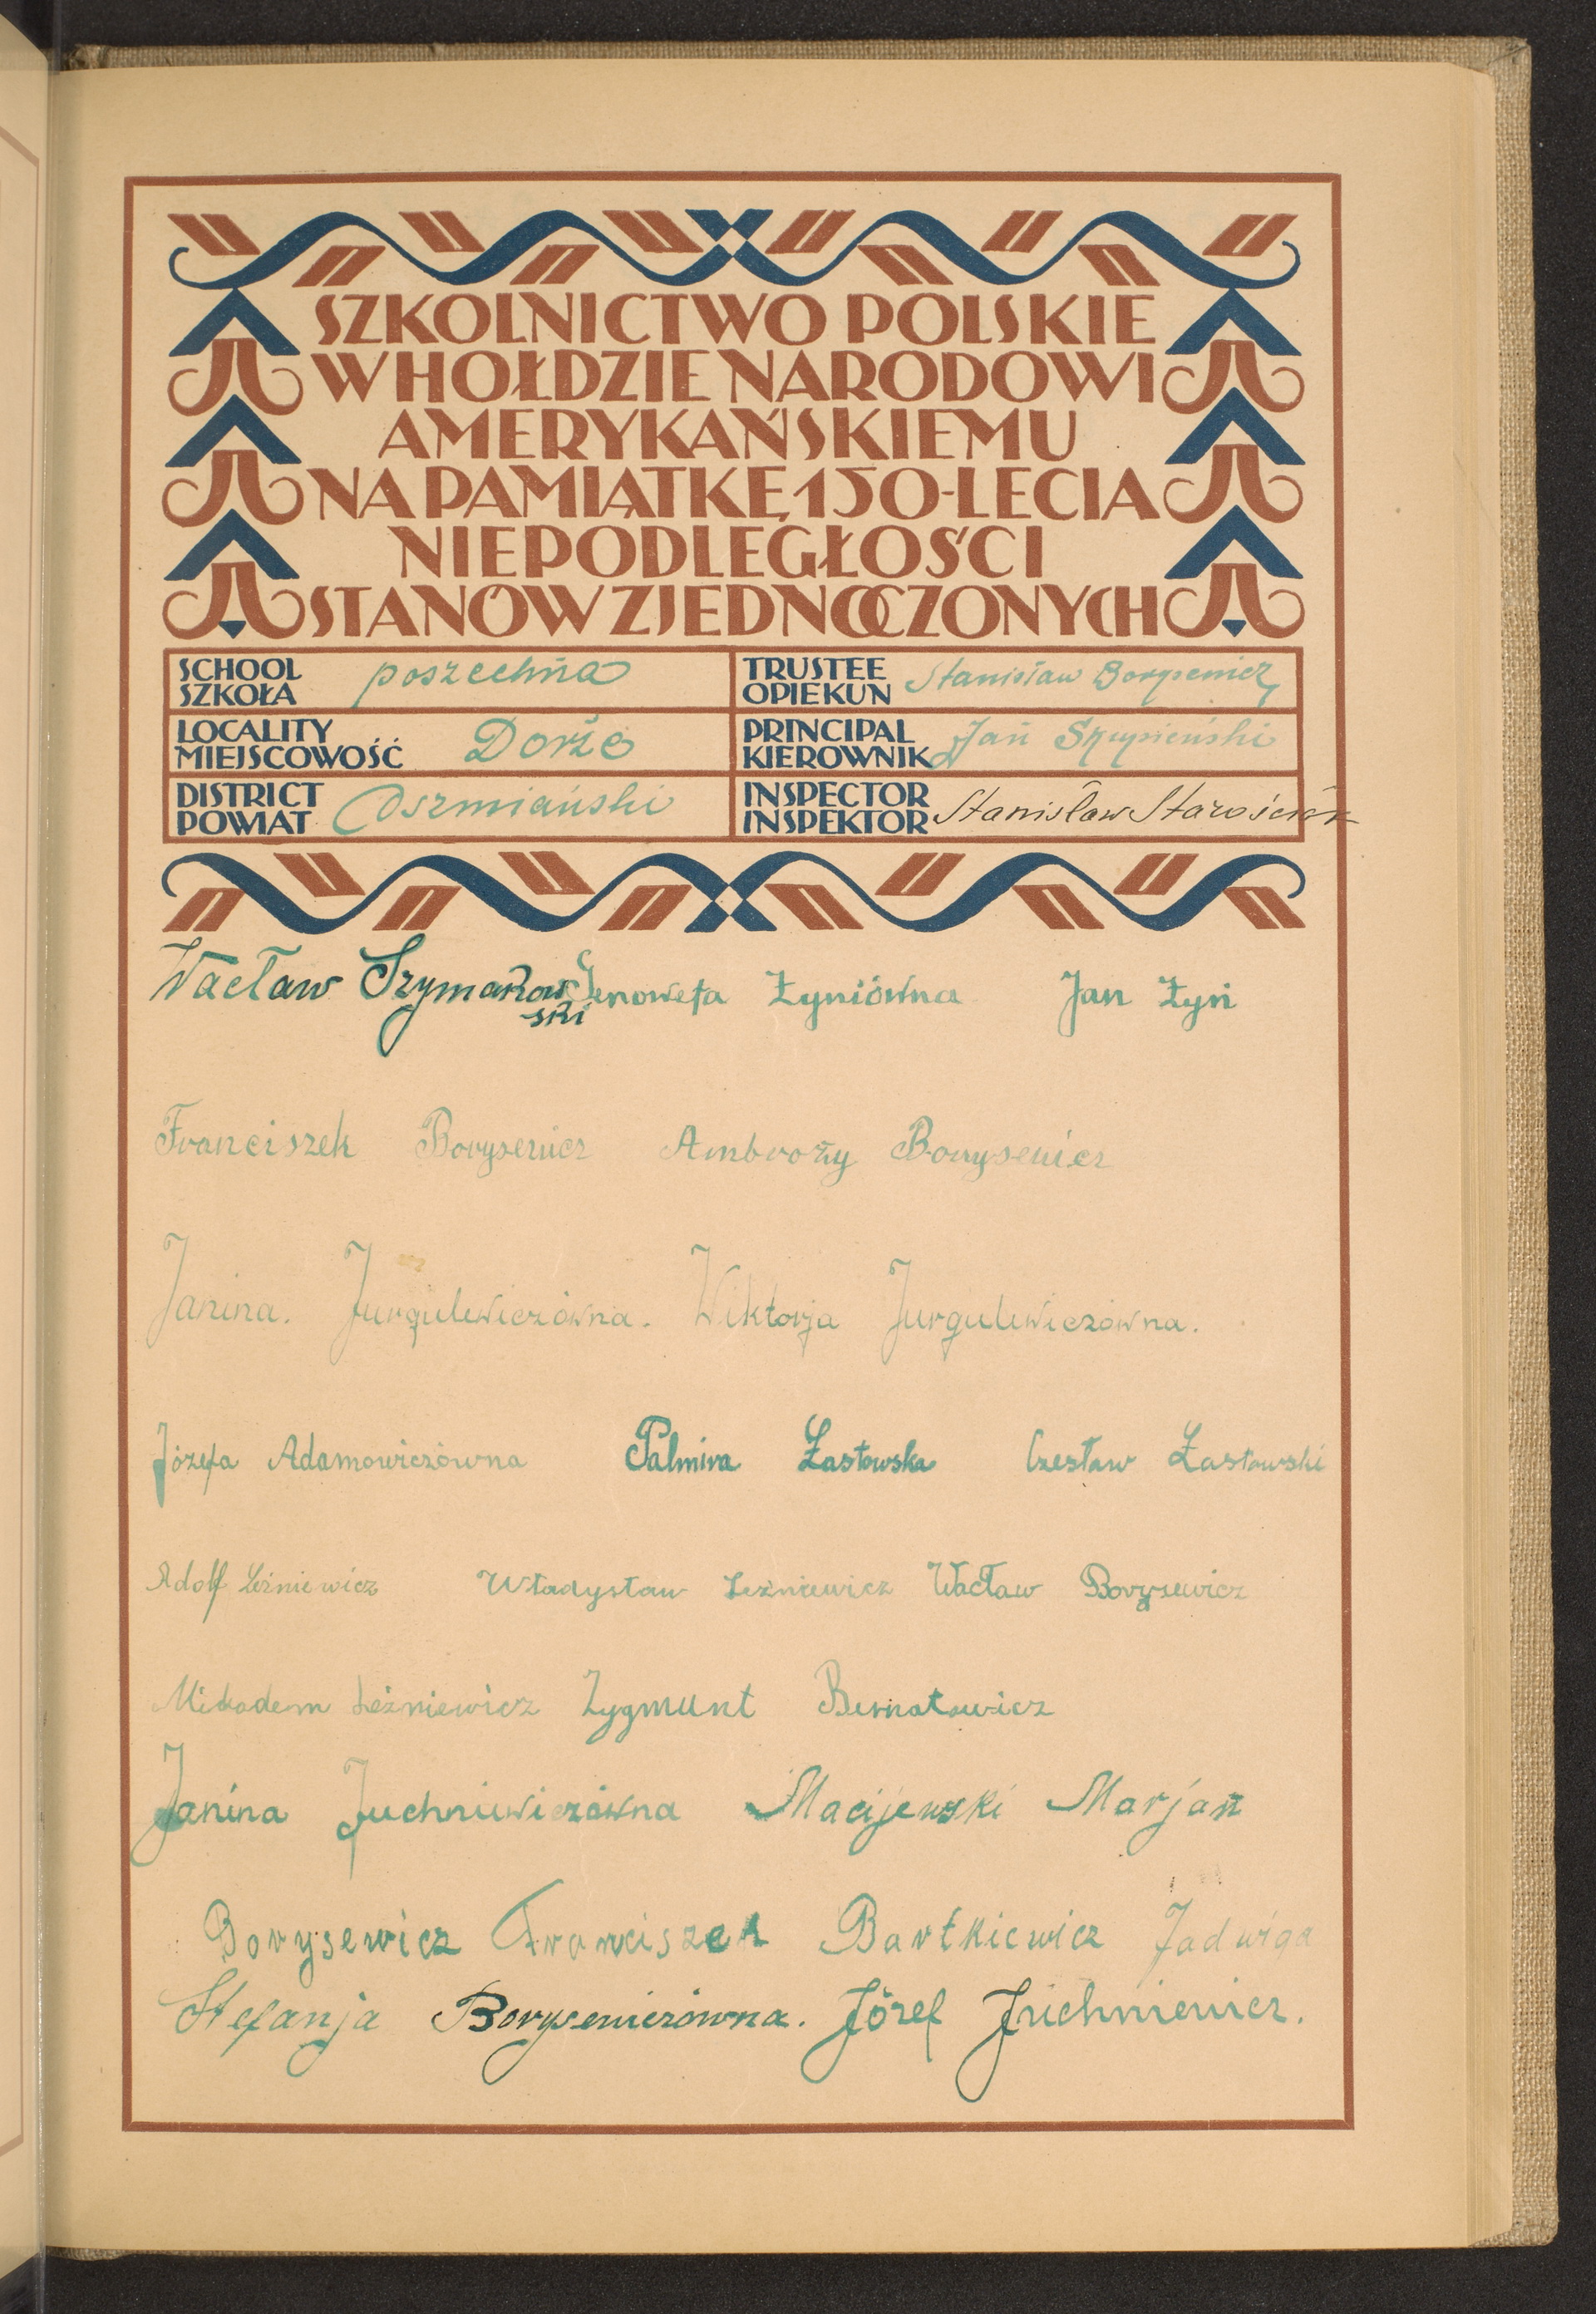 SZKOLNICTWO POLSKIE
W HOŁDZIE NARODOWI
AMERYKAŃSKIEMU
NA PAMIĄTKĘ 150-LECIA
NIEPODLEGŁOŚCI
STANÓW ZJEDNOCZONYCH
SCHOOL
SZKOŁA
poszechna
TRUSTEE
OPIEKUN
Stanisław Borysewicz
LOCALITY
MIEJSCOWOŚĆ
Dorże
PRINCIPAL
KIEROWNIK
Jan Skupieński
DISTRICT
POWIAT
Oszmiański
INSPECTOR
INSPEKTOR
Stanisław Starościak
Wacław Szymanowski Genowefa Żyniówna Jan Żyń
Franciszek Borysewicz Ambroży Borysewicz
Janina. Jurgulewiczówna. Wiktorja Jurgulewiczówna.
Józefa Adamowiczówna Palmira Łastowska Czesław Łastowski
Adolf Leźniewicz Władysław Leźniewicz Wacław Borysewicz
Nikodem Leźniewicz Zygmunt Bernatowicz
Janina Juchniewiczówna Macijewski Marjan
Borysewicz Franciszek Bartkiewicz Jadwiga
Stefanja Borysewiczówna. Józef Juchniewicz.